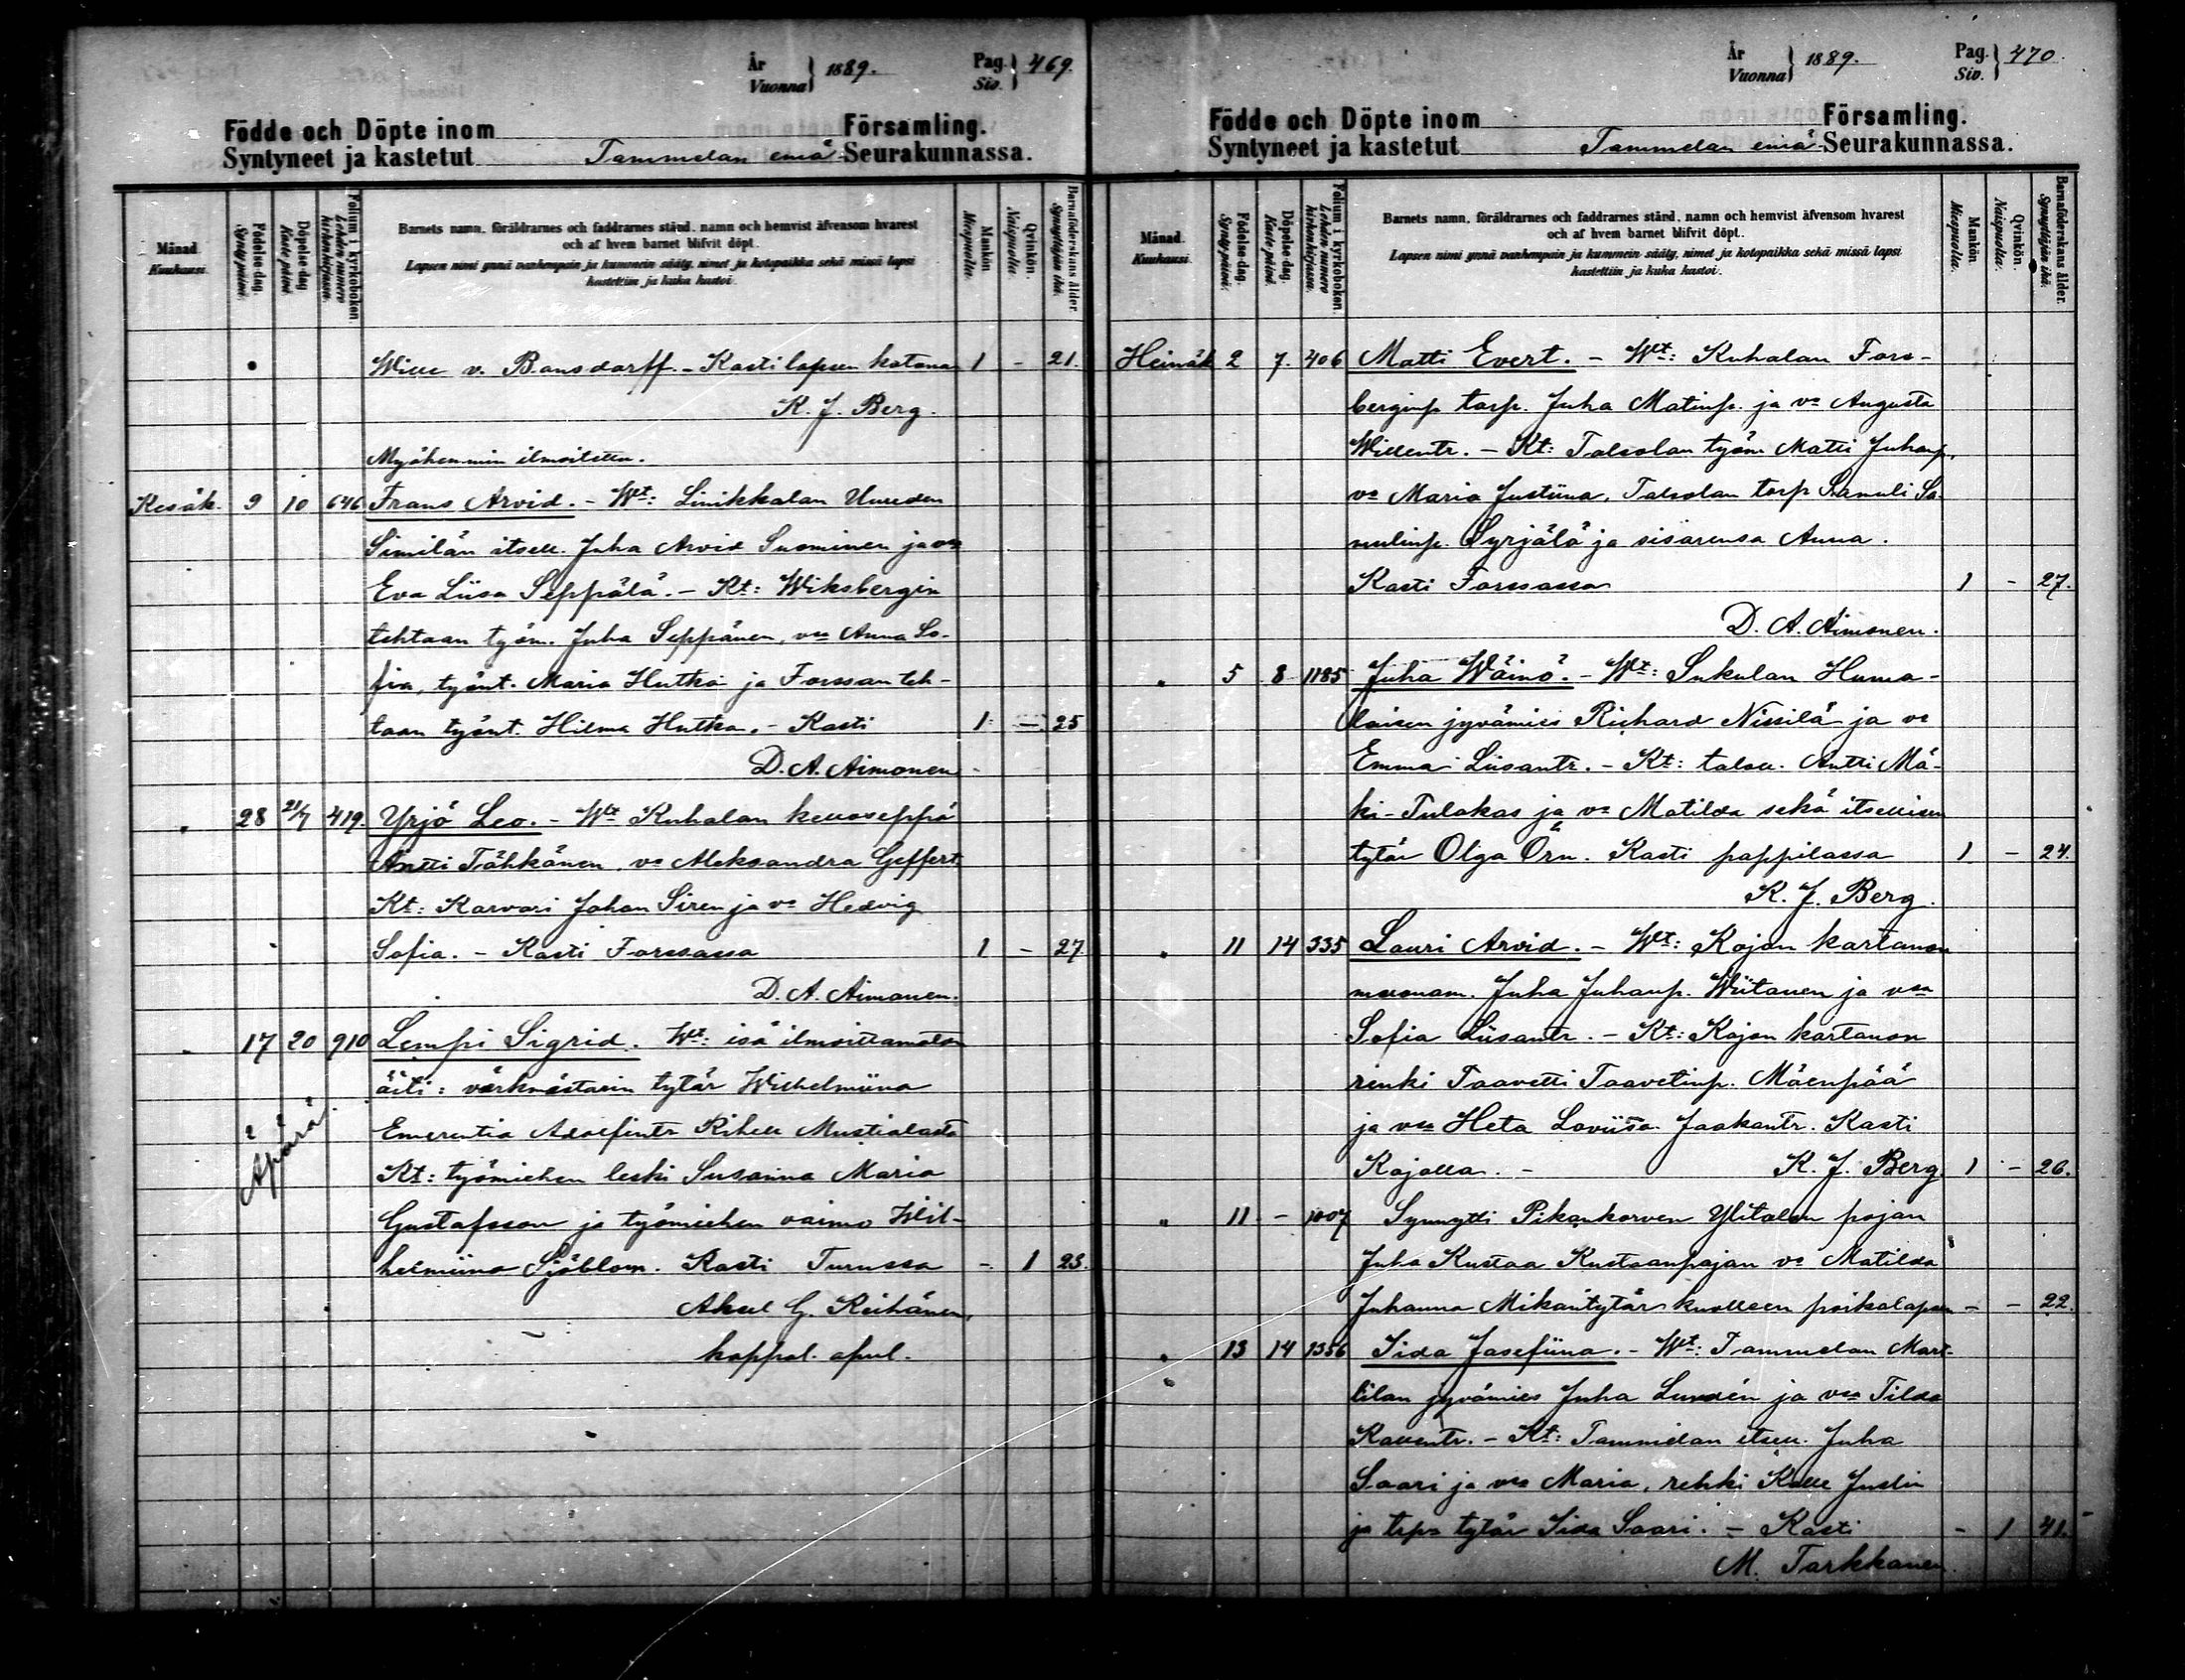 År
Vuonna } 1889.
Pag.
Siv. } 469.
Födde och Döpte inom Församling.
Syntyneet ja kastetut Tammelan emä Seurakunnassa.
Månad. Kuukausi.
Födelse-dag. Synty päivä.
Döpelse-dag. Kaste päivä.
Folium i kyrkoboken. Lehden numero kirkonkirjassa.
Barnets namn, föräldrarnes och faddrarnes stånd, namn och hemvist äfvensom hvarest
och af hvem barnet blifvit döpt.
Lapsen nimi ynnä vanhempain ja kummein sääty, nimet ja kotopaikka sekä missä lapsi
kastettiin ja kuka kastoi.
Mankön. Miespuolia.
Qvinkön. Naispuolia.
Barnaföderskans ålder. Synnyttäjän ikä.
Wille v. Bonsdorff. - Kasti lapsen kotona 1 - 21.
K. J. Berg.
Myöhemmin ilmoitettu.
Kesäk. 9 10 646 Frans Arvid. - Wt: Linikkalan Uuden
Similän itsell. Juha Arvid Suominen ja vo
Eva Liisa Seppälä. - Kt: Wiksbergin
tehtaan työm. Juha Seppänen, vo Anna So-
fia, työnt. Maria Hutka ja Forssan teh-
taan työnt. Hilma Hutka. - Kasti 1 - 25
D. A. Aimonen
" 28 21/7 419. Yrjö Leo. - Wt Kuhalan kelloseppä
Antti Tähkänen, vo Aleksandra Geffert.
Kt: Karvari Johan Siren ja vo Hedvig
Sofia. - Kasti Forssassa 1 - 27.
D. A. Aimonen.
" 17 20 910 Lempi Sigrid. Wt: isä ilmoittamaton
äiti: värkmästarin tytär Wilhelmiina
Emerentia Adolfintr Rihell Mustialasta
Äpärä
Kt: työmiehen leski Susanna Maria
Gustafsson ja työmiehen vaimo Wil-
helmiina Sjöblom. Kasti Turussa - 1 23.
Aksel G. Keihänen,
kappal. apul.
År
Vuonna } 1889.
Pag.
Siv. } 470.
Födde och Döpte inom Församling.
Syntyneet ja kastetut Tammelan emä Seurakunnassa.
Månad. Kuukausi.
Födelse-dag. Synty päivä.
Döpelse-dag. Kaste päivä.
Folium i kyrkoboken. Lehden numero kirkonkirjassa.
Barnets namn, föräldrarnes och faddrarnes stånd, namn och hemvist äfvensom hvarest
och af hvem barnet blifvit döpt.
Lapsen nimi ynnä vanhempain ja kummein sääty, nimet ja kotopaikka sekä missä lapsi
kastettiin ja kuka kastoi.
Mankön. Miespuolia.
Qvinkön. Naispuolia.
Barnaföderskans ålder. Synnyttäjän ikä.
Heinäk 2 7. 406 Matti Evert. - Wt: Kuhalan Fors-
berginp torp. Juha Matinp. ja vo Augusta
Willentr. - Kt: Talsolan työm Matti Juhanp,
vo Maria Justiina, Talsolan torp Samuli Sa-
mulinp. Syrjälä ja sisarensa Anna.
Kasti Forssassa 1 - 27.
D. A. Aimonen.
" 5 8 1185 Juha Wäinö. - Wt: Sukulan Huma-
laisen jyvämies Richard Nissilä ja vo
Emma Liisantr. - Kt: talol. Antti Mä-
ki-Tulokas ja vo Matilda sekä itsellisen
tytär Olga Örn. Kasti pappilassa 1 - 24.
K. J. Berg.
" 11 14 335 Lauri Arvid. - Wt: Kojon kartanon
muonam. Juha Juhanp. Wiitanen ja von
Sofia Liisantr. - Kt: Kojon kartanon
renki Taavetti Taavetinp. Mäenpää
ja vo Heta Loviisa Jaakontr. Kasti
Kojolla. - K. J. Berg 1 - 26.
" 11 - 1007 Synnytti Pikonkorven Ylitalon pojan
Juha Kustaa Kustaanpojan vo Matilda
Juhanna Mikontytär kuolleen poikalapsen - - 22.
" 13 14 1356 Iida Josefiina. - Wt: Tammelan Mart-
tilan jyvämies Juha Lundén ja vo Tilda
Kallentr. - Kt: Tammelan itsell. Juha
Saari ja vo Maria, renki Kalle Juslin
ja torp tytär Iida Saari. - Kasti - 1 41.
M. Tarkkanen